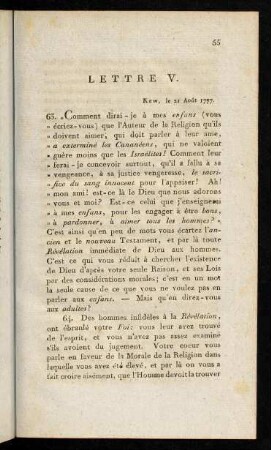 55
LETTRE V.
Kew, le 21 Août 1797.
63. „Comment dirai-je à mes enfans (vous
» écriez-vous) que l'Auteur de la Religion qu'ils
» doivent aimer, qui doit parler à leur ame,
» a exterminé les Cananéens, qui ne valoient
» guère moins que les Israélites? Comment leur
» ferai-je concevoir surtout, qu'il a fallu à sa
» vengeance, à sa justice vengeresse, le sacri-
» fice du sang innocent pour l'appaiser! Ah!
» mon ami! est-ce là le Dieu que nous adorons
» vous et moi? Est-ce celui que j'enseignerai
» à mes enfans, pour les engager à être bons,
» à pardonner, à aimer tous les hommes? «
C'est ainsi qu'en peu de mots vous écartez l'an-
cien et le nouveau Testament, et par là toute
Révélation immédiate de Dieu aux hommes.
C'est ce qui vous réduit à chercher l'existence
de Dieu d'après votre seule Raison, et ses Lois
par des considérations morales; c'est en un mot
la seule cause de ce que vous ne voulez pas en
parler aux enfans. — Mais qu'en direz-vous
aux adultes?
64. Des hommes infidèles à la Révélation,
ont ébranlé votre Foi: vous leur avez trouvé
de l'esprit, et vous n'avez pas assez examiné
s'ils avoient du jugement. Votre coeur vous
parle en faveur de la Morale de la Religion dans
laquelle vous avez été élevé, et par là on vous a
fait croire aisément, que l'Homme devoit la trouver